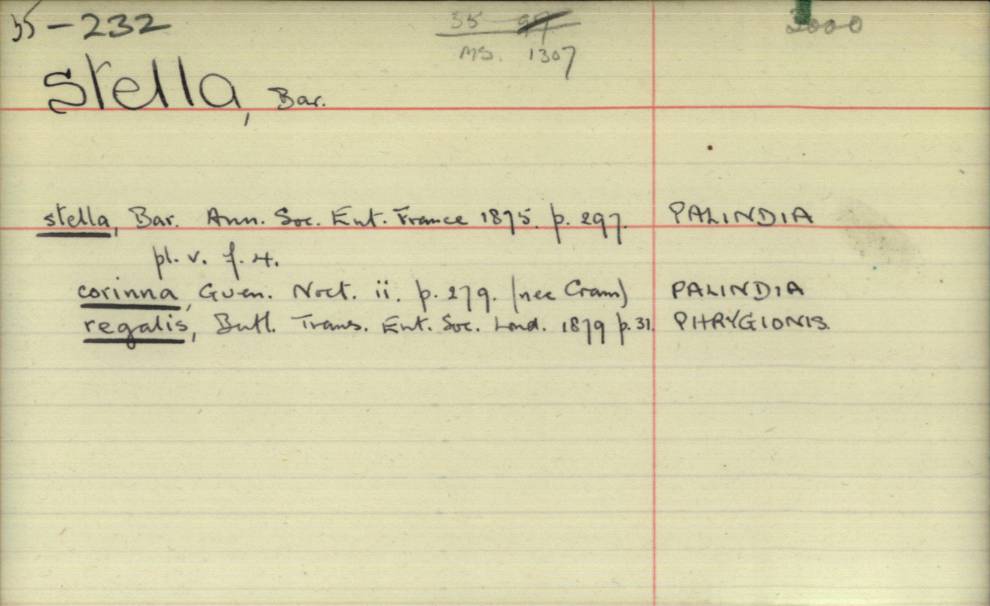 55-232
55 97
MS. 1307
3000
stella, Bar.
stella, Bar. Ann. Soc. Ent. France 1875. p. 297. PALINDIA
pl. v. f. 4.
corinna, Guen. Noct. ii. p. 279. (nec Cram) PALINDIA
regalis, Butl. Trans. Ent. Soc. Lond. 1879 p. 31. PHRYGIONIS.